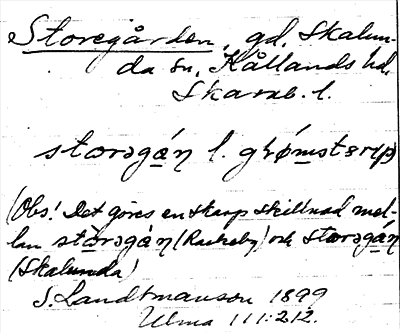 Storegården, gd, Skalun-
da sn, Kållands hd,
Skarab. l.
storəgá́ꞑ l.
(Obs! Det göres en skarp skillnad mel-
lan stòrəgá́ꞑ (Rackeby) och storəgá́ꞑ
(Skalunda)
S. Landtmanson 1899
Ulma 111:212.